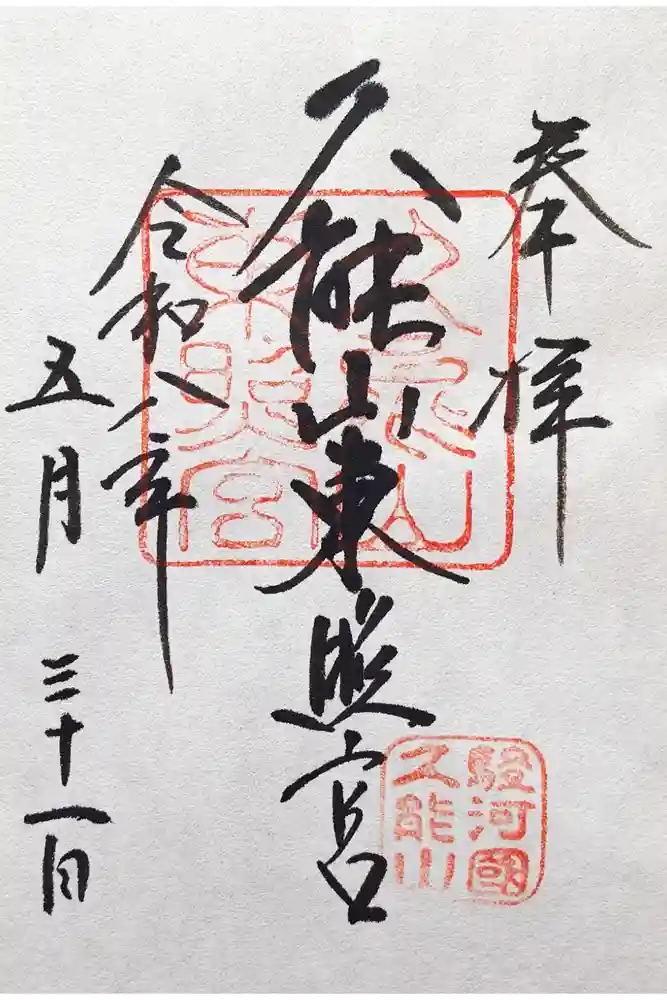 奉拝
久能山東照宮
令和八年
五月三十一日
久能山
東照宮
駿河國
久能山